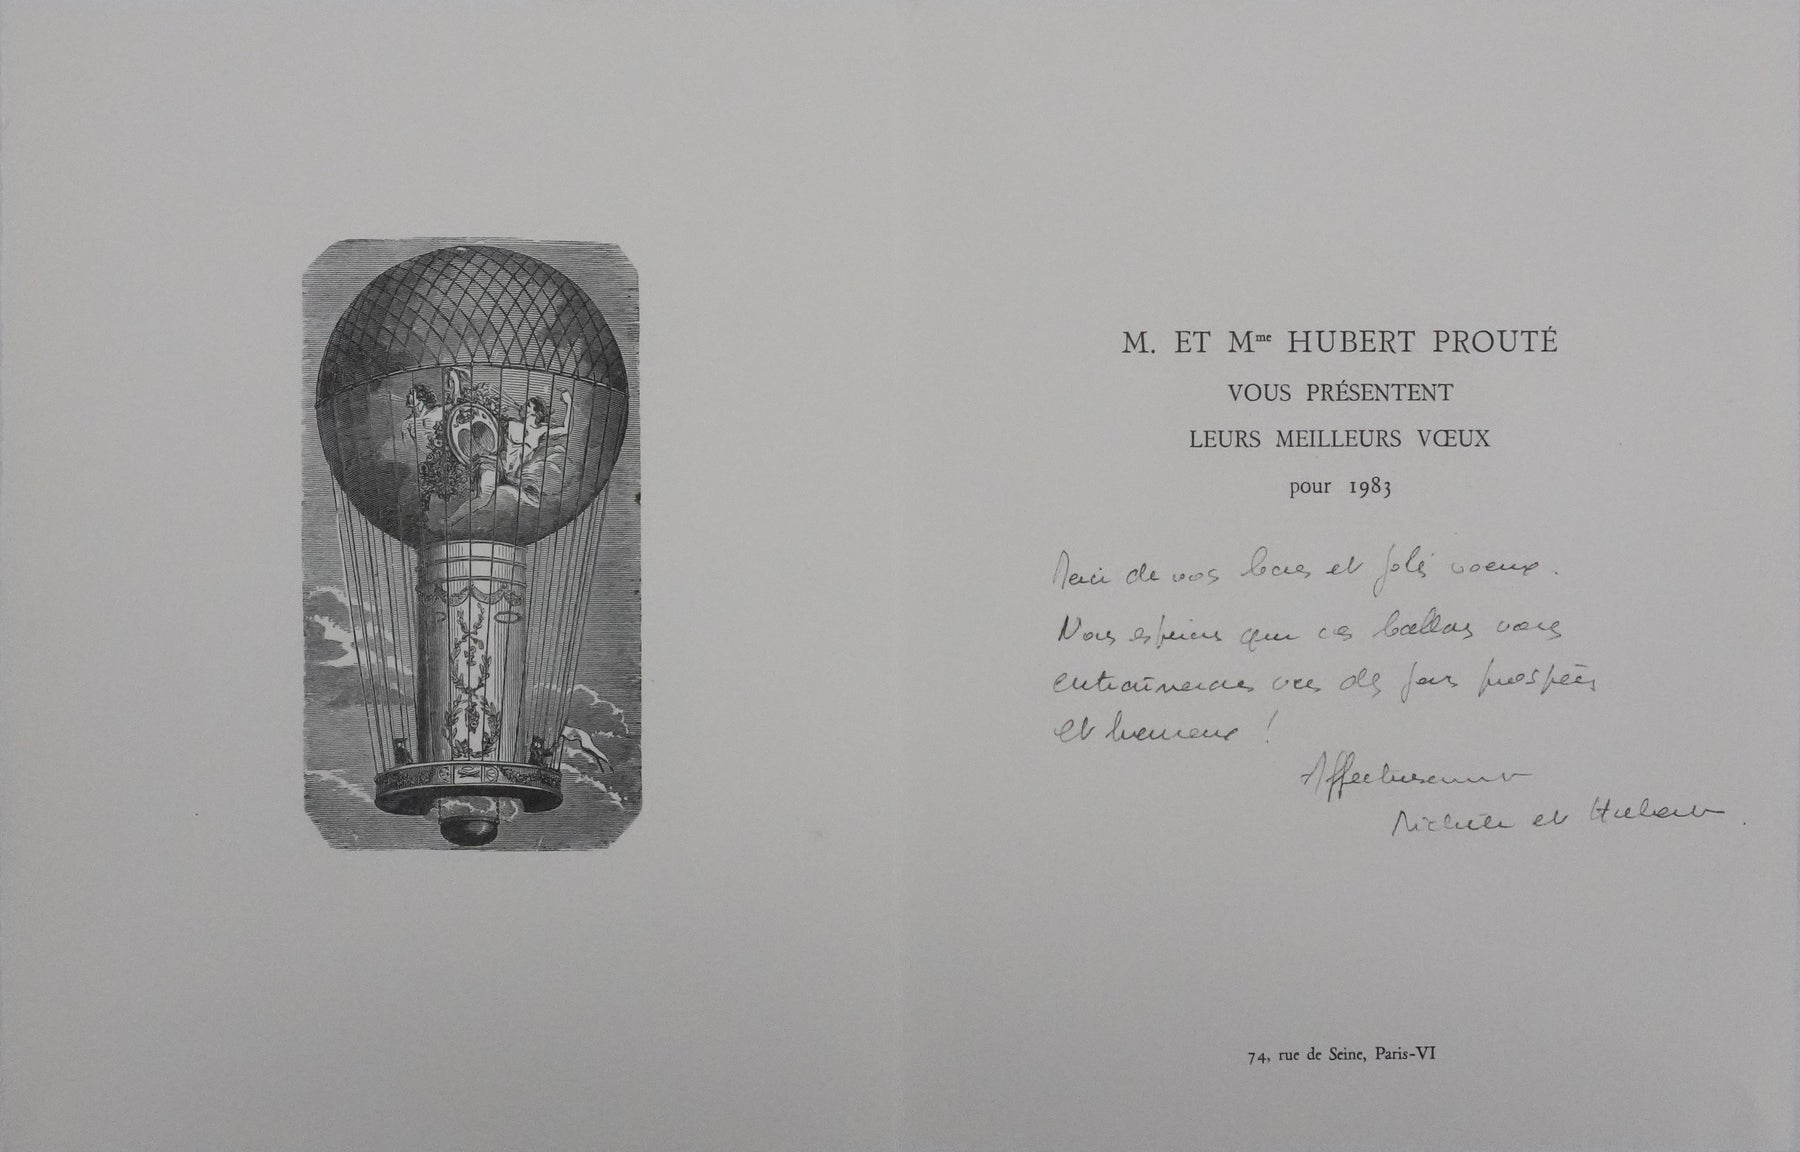 M. ET Mme HUBERT PROUTÉ
VOUS PRÉSENTENT
LEURS MEILLEURS VŒUX
pour 1983
Merci de vos bons et jolis voeux.
Nous espérons que ces ballons vous
entraîneront vers des jours prospères
et heureux !
Affectueusement
Michèle et Hubert.
74, rue de Seine, Paris-VI